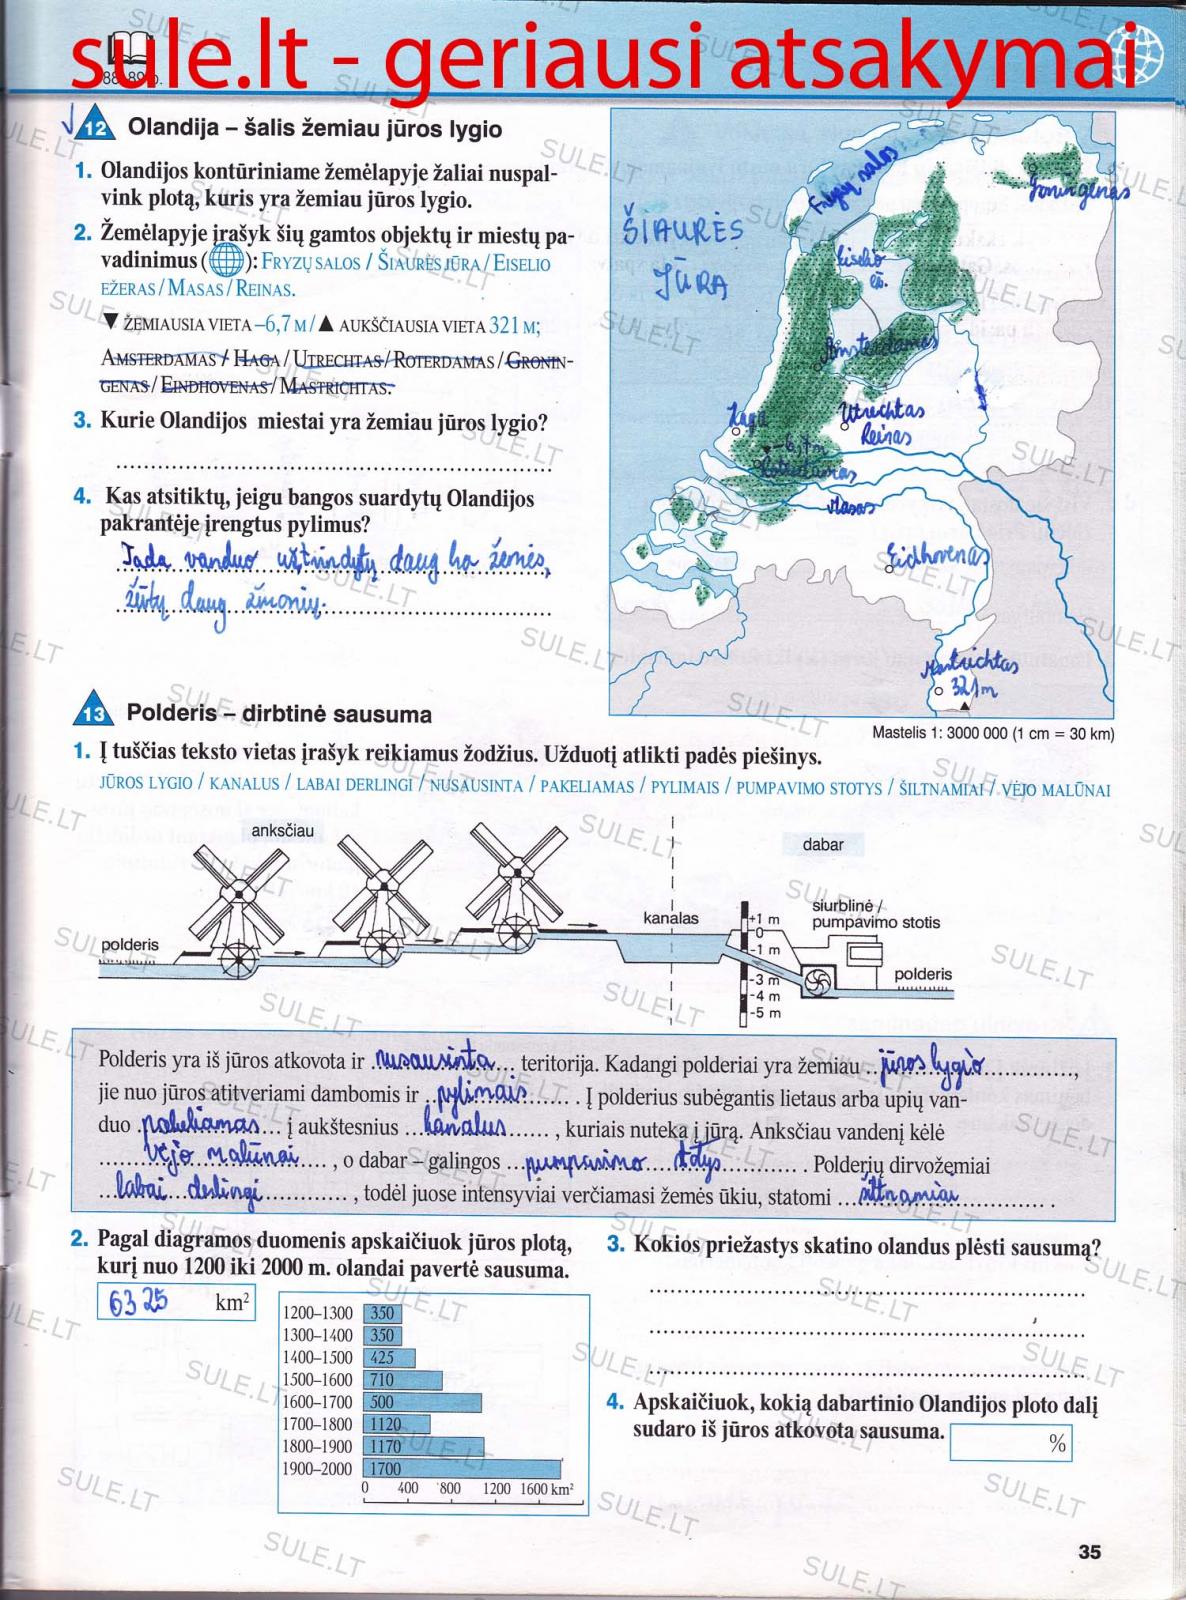 sule.lt - geriausi atsakymai
88–89 p.
12 Olandija – šalis žemiau jūros lygio
1. Olandijos kontūriniame žemėlapyje žaliai nuspal-
vink plotą, kuris yra žemiau jūros lygio.
2. Žemėlapyje įrašyk šių gamtos objektų ir miestų pa-
vadinimus ( ): FRYZŲ SALOS / ŠIAURĖS JŪRA / EISELIO
EŽERAS / MASAS / REINAS.
▼ ŽEMIAUSIA VIETA –6,7 M / ▲ AUKŠČIAUSIA VIETA 321 M;
AMSTERDAMAS / HAGA / UTRECHTAS / ROTERDAMAS / GRONIN-
GENAS / EINDHOVENAS / MASTRICHTAS.
3. Kurie Olandijos miestai yra žemiau jūros lygio?
4. Kas atsitiktų, jeigu bangos suardytų Olandijos
pakrantėje įrengtus pylimus?
Tada vanduo užtvindytų daug ha žemės,
žūtų daug žmonių.
Fryzų salos
Groningenas
ŠIAURĖS
JŪRA
Eiselio
ež.
Amsterdamas
Haga
Utrechtas
Reinas
-6,7m
Roterdamas
Masas
Eidhovenas
Mastrichtas
321m
Mastelis 1: 3000 000 (1 cm = 30 km)
13 Polderis – dirbtinė sausuma
1. Į tuščias teksto vietas įrašyk reikiamus žodžius. Užduotį atlikti padės piešinys.
JŪROS LYGIO / KANALUS / LABAI DERLINGI / NUSAUSINTA / PAKELIAMAS / PYLIMAIS / PUMPAVIMO STOTYS / ŠILTNAMIAI / VĖJO MALŪNAI
anksčiau
dabar
polderis
kanalas
+1 m
0
-1 m
-3 m
-4 m
-5 m
siurblinė /
pumpavimo stotis
polderis
Polderis yra iš jūros atkovota ir nusausinta teritorija. Kadangi polderiai yra žemiau jūros lygio,
jie nuo jūros atitveriami dambomis ir pylimais. Į polderius subėgantis lietaus arba upių van-
duo pakeliamas į aukštesnius kanalus, kuriais nuteka į jūrą. Anksčiau vandenį kėlė
vėjo malūnai, o dabar – galingos pumpavimo stotys. Polderių dirvožemiai
labai derlingi, todėl juose intensyviai verčiamasi žemės ūkiu, statomi šiltnamiai.
2. Pagal diagramos duomenis apskaičiuok jūros plotą,
kurį nuo 1200 iki 2000 m. olandai pavertė sausuma.
6325 km²
1200–1300 350
1300–1400 350
1400–1500 425
1500–1600 710
1600–1700 500
1700–1800 1120
1800–1900 1170
1900–2000 1700
0 400 800 1200 1600 km²
3. Kokios priežastys skatino olandus plėsti sausumą?
4. Apskaičiuok, kokią dabartinio Olandijos ploto dalį
sudaro iš jūros atkovota sausuma. %
35
SULE.LT